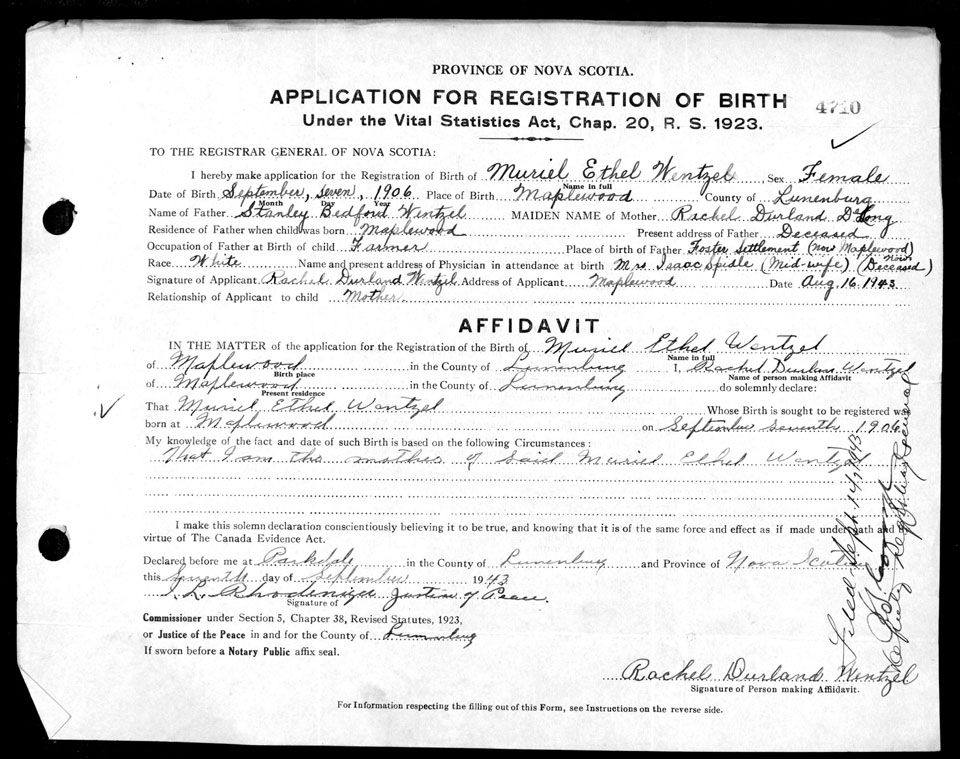 PROVINCE OF NOVA SCOTIA.
APPLICATION FOR REGISTRATION OF BIRTH
4710
Under the Vital Statistics Act, Chap. 20, R. S. 1923.
TO THE REGISTRAR GENERAL OF NOVA SCOTIA:
I hereby make application for the Registration of Birth of Muriel Ethel Wentzel Sex Female
Name in full
Date of Birth September, seven, 1906 Place of Birth Maplewood County of Lunenburg
Month Day Year
Name of Father Stanley Bedford Wentzel MAIDEN NAME of Mother Rachel Durland DeLong
Residence of Father when child was born Maplewood Present address of Father Deceased
Occupation of Father at Birth of child Farmer Place of Birth of Father Foster Settlement (Now Maplewood)
Race White Name and present address of Physician in attendance at birth Mrs Isaac Spidle (Mid-wife) (Now Deceased)
Signature of Applicant Rachel Durland Wentzel Address of Applicant Maplewood Date Aug. 16 1943
Relationship of Applicant to child Mother
AFFIDAVIT
IN THE MATTER of the application for the Registration of the Birth of Muriel Ethel Wentzel
Name in full
of Maplewood in the County of Lunenburg I, Rachel Durland Wentzel
Birth place Name of person making Affidavit
of Maplewood in the County of Lunenburg do solemnly declare:
Present residence
That Muriel Ethel Wentzel Whose Birth is sought to be registered was
born at Maplewood on September Seventh 1906
My knowledge of the fact and date of such Birth is based on the following Circumstances:
That I am the mother of said Muriel Ethel Wentzel
I make this solemn declaration conscientiously believing it to be true, and knowing that it is of the same force and effect as if made under oath and by
virtue of The Canada Evidence Act.
Declared before me at Parkdale in the County of Lunenburg and Province of Nova Scotia
this Seventh day of September 1943
I. L. Rhodenizer Justice of Peace.
Signature of
Commissioner under Section 5, Chapter 38, Revised Statutes, 1923,
or Justice of the Peace in and for the County of Lunenburg
If sworn before a Notary Public affix seal.
Rachel Durland Wentzel
Signature of Person making Affidavit.
For Information respecting the filling out of this Form, see Instructions on the reverse side.
Filed Sept. 14, 1943
Deputy Registrar General